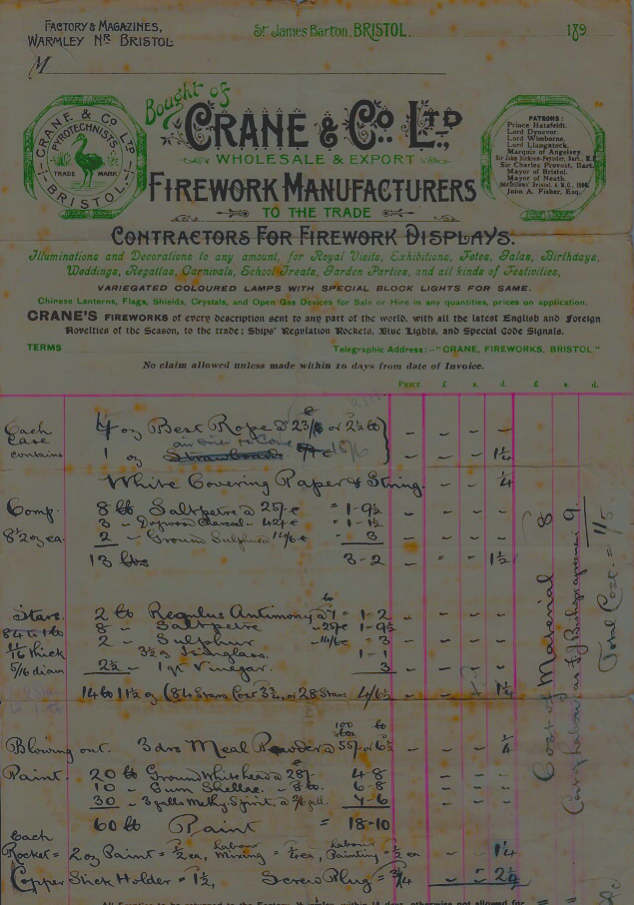 FACTORY & MAGAZINES,
WARMLEY NR BRISTOL
St JAMES BARTON, BRISTOL. 189
M
Bought of
CRANE & CO. LTD
WHOLESALE & EXPORT
FIREWORK MANUFACTURERS
TO THE TRADE
CRANE & CO LTD
PYROTECHNISTS
TRADE MARK
BRISTOL
PATRONS:
Prince Hatzfeldt.
Lord Dynevor.
Lord Wimborne.
Lord Llangatock.
Marquis of Anglesey.
Sir John Dickson-Poynder, Bart., M.P.
Sir Charles Provost, Bart.
Mayor of Bristol.
Mayor of Neath.
John A. Fisher, Esq.
CONTRACTORS FOR FIREWORK DISPLAYS.
Illuminations and Decorations to any amount, for Royal Visits, Exhibitions, Fetes, Galas, Birthdays,
Weddings, Regattas, Carnivals, School Treats, Garden Parties, and all kinds of Festivities,
VARIEGATED COLOURED LAMPS WITH SPECIAL BLOCK LIGHTS FOR SAME.
Chinese Lanterns, Flags, Shields, Crystals, and Open Gas Devices for Sale or Hire in any quantities, prices on application.
CRANE'S FIREWORKS of every description sent to any part of the world, with all the latest English and Foreign
Novelties of the Season, to the trade; Ships' Regulation Rockets, Blue Lights, and Special Code Signals.
TERMS Telegraphic Address:—"CRANE, FIREWORKS, BRISTOL"
No claim allowed unless made within 10 days from date of Invoice.
PRICE £ s. d. £ s. d.
Each 4 oz Best Rope
Case
contains 1 oz 1¼
White Covering Paper & String. ¼
Comp. 8 lb Saltpetre @ 25/- c = 1-9½
3 - Dogwood Charcoal - 42/- c = 1-1½
8½ oz ea. 2 - Ground Sulphur = 3
13 lbs 3-2 1½
Stars. 2 lb Regulus Antimony @ 7 = 1-2
84 to 1 lb 8 - Saltpetre - 25/- c = 1-9½
thick 2 - Sulphur = 3
3½ oz Isinglass. 1-1
5/16 diam 2½ - 1 qt Vinegar. 3
14 lb 11½ oz (84 Stars Cost 3¾, or 28 Stars 4/6½ 1¼
Blowing out. 3 drs Meal Powder @ 55/- or 6½ ¼
Paint. 20 lb Ground White lead @ 28/- 4-8
10 - Gum Shellac - 8 lb. 6-8
30 - 3 galls Methy. Spirit @ 2/6 gall. 7-6
60 lb Paint = 18-10
Each
Rocket = 2 oz Paint = ½ ea, Labour Mixing = ¼ ea, Labour Painting = ½ ea 1¼
Copper Stick Holder = 1½, Screw Plug = ¾ 2¼
Cost of Material 8
9.
Total Cost = 1/5